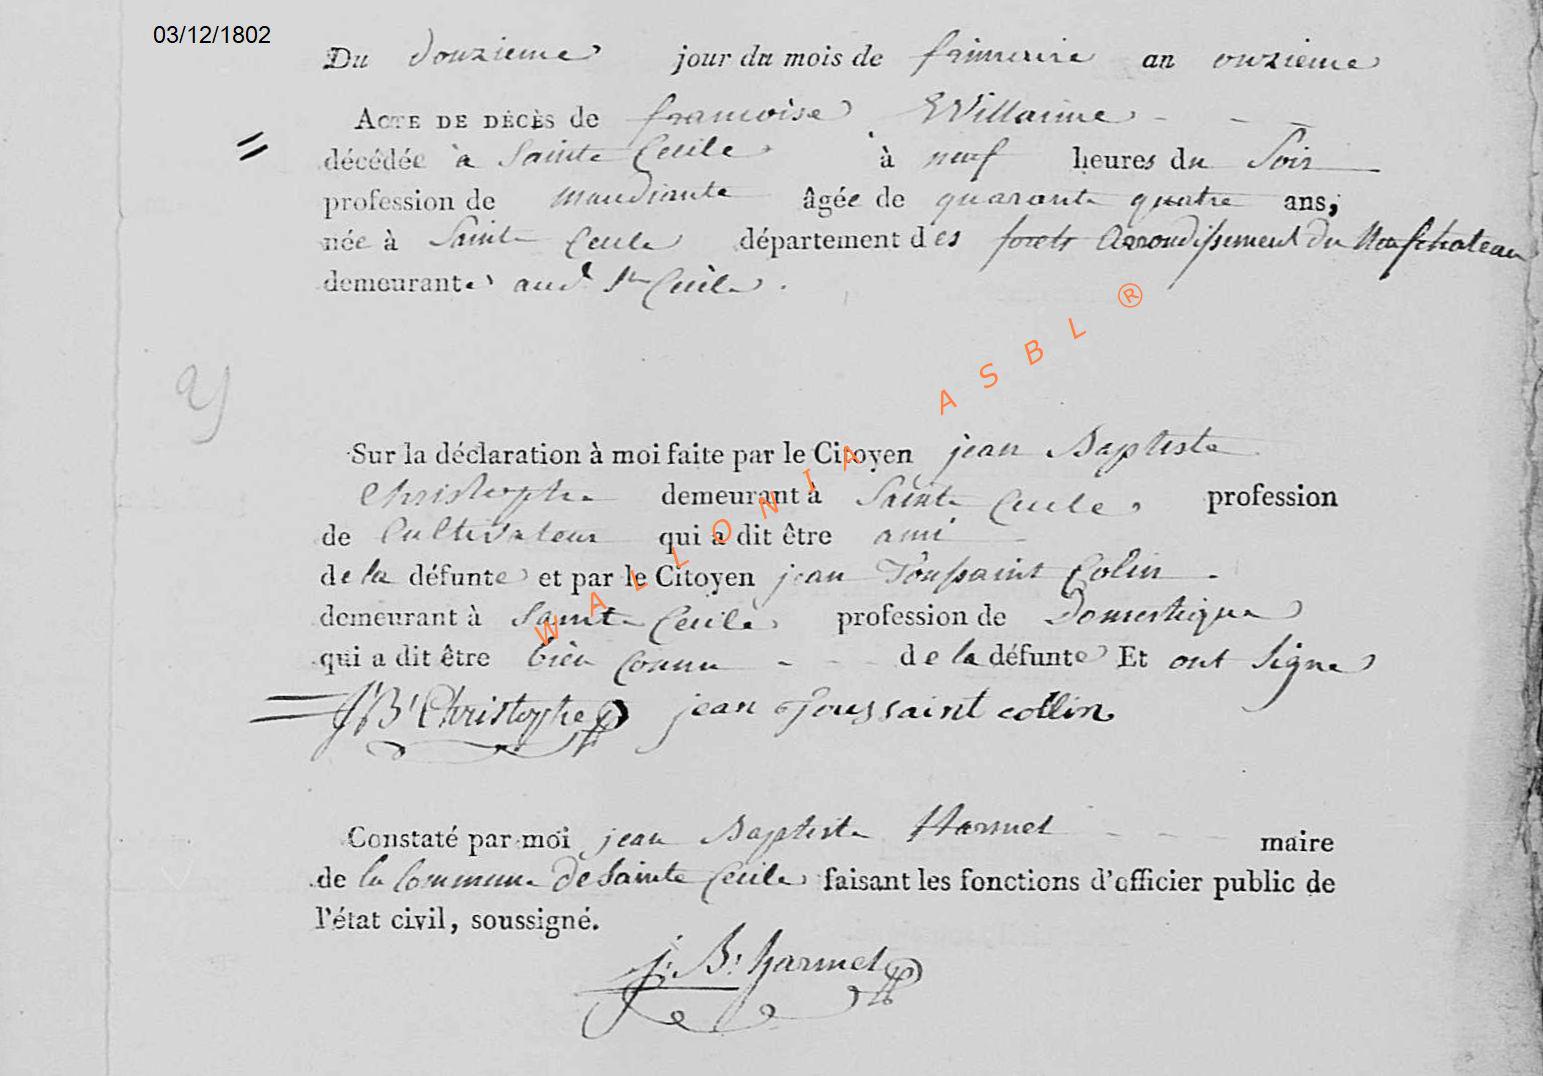 03/12/1802
Du douzieme jour du mois de frimerire an onzieme
ACTE DE DÉCÈS de francoise Willaime
décédée à Sainte Cecile à neuf heures du Soir
profession de mandiante âgée de quarante quatre ans;
née à Sainte Cecile département des forets Arrondissement du Neufchateau
demeurante aud. Ste Cécile.
Sur la déclaration à moi faite par le Citoyen jean Baptiste
Christophe demeurant à Sainte Cecile profession
de Cultivateur qui a dit être ami
de la défunte et par le Citoyen jean Toussaint Colin
demeurant à Sainte Cecile profession de Domestique
qui a dit être bien Connu de la défunte Et ont Signe
J B.t Christophe jean Toussaint collin
Constaté par moi jean Baptiste Harmel maire
de la Commune de Sainte Cecile faisant les fonctions d'officier public de
l'état civil, soussigné.
j. B.t harmel
WALLONIA ASBL ®